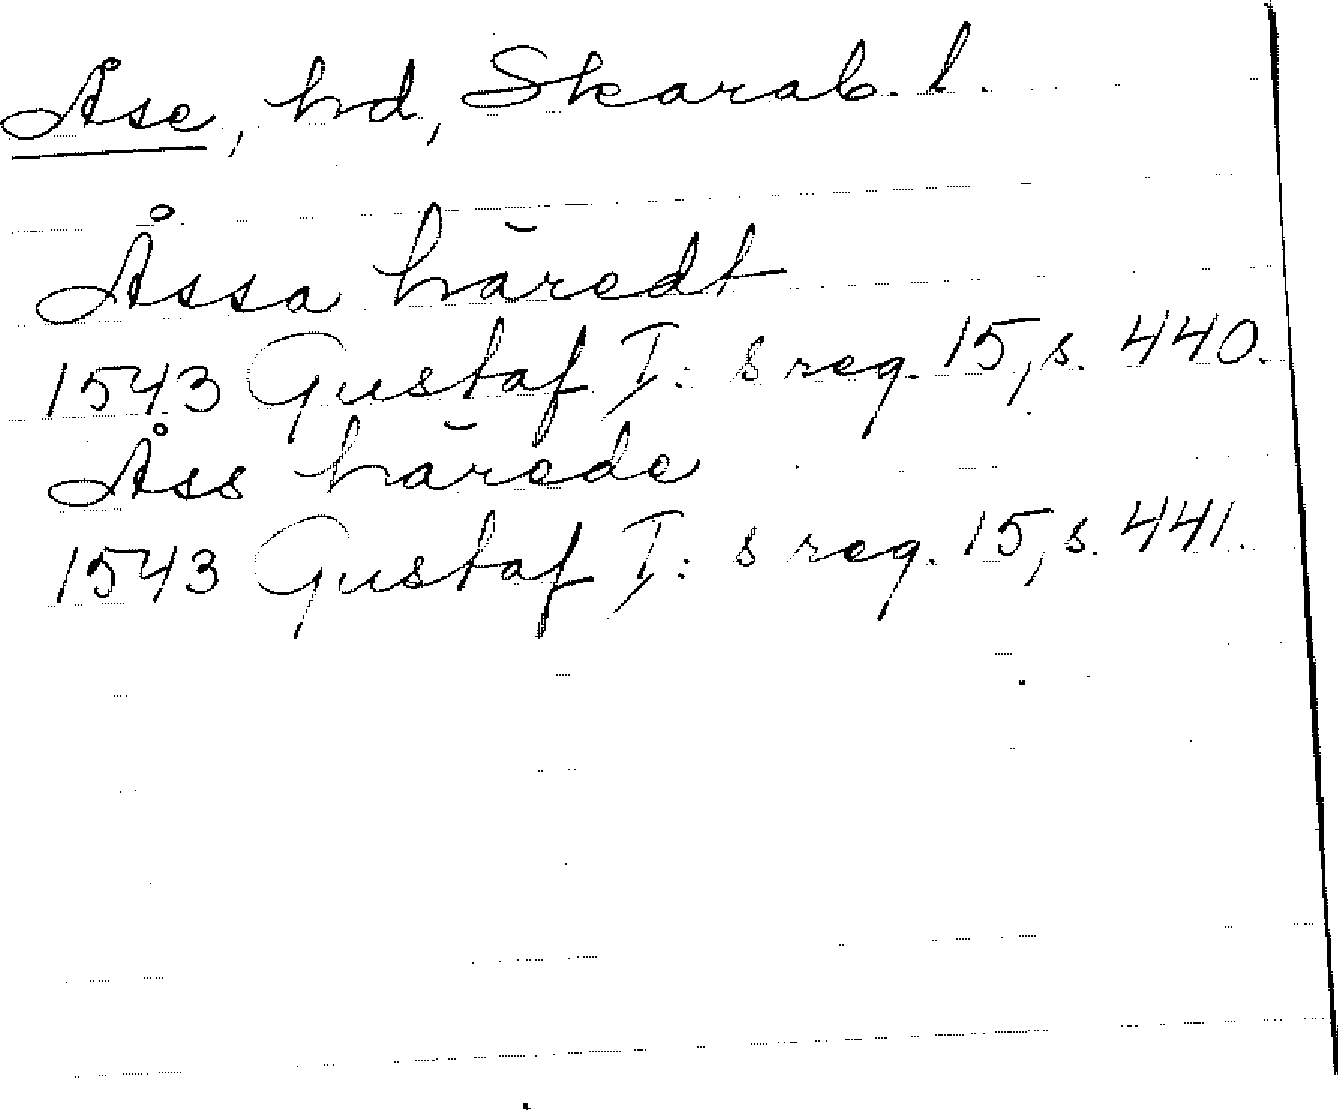 Åse, hd, Skarab. l.
Åssa häredt
1543 Gustaf I:s reg. 15, s. 440.
Åss härede
1543 Gustaf I:s reg. 15, s. 441.